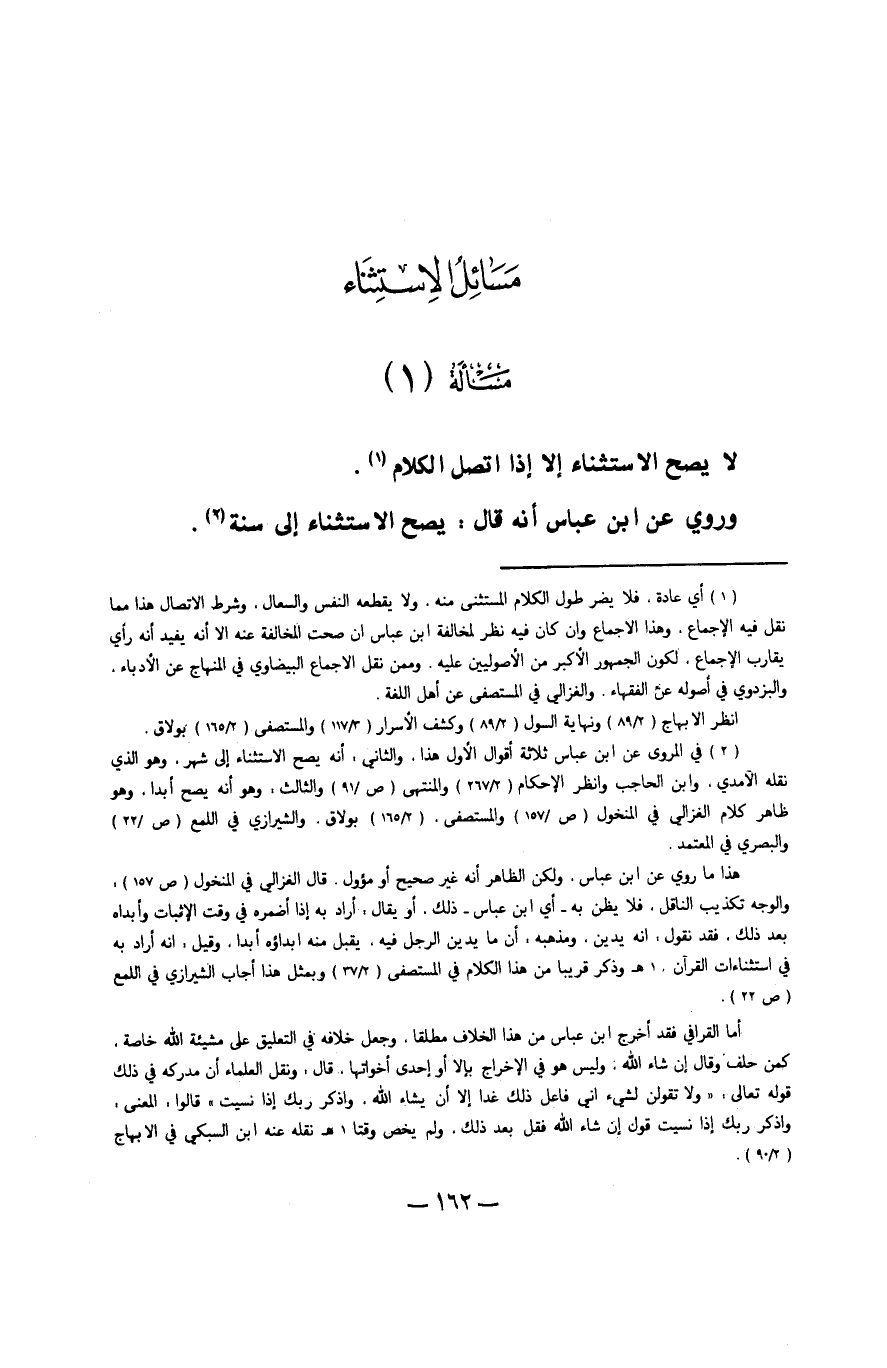 مَسَائِلُ الاِسْتِثنَاء
مَسْأَلَة (١)
لا يصح الاستثناء إلا إذا اتصل الكلام (١) .
وروي عن ابن عباس أنه قال : يصح الاستثناء إلى سنة (٢) .
(١) أي عادة . فلا يضر طول الكلام المستثنى منه . ولا يقطعه النفس والسعال . وشرط الاتصال هذا مما
نقل فيه الإجماع . وهذا الاجماع وان كان فيه نظر لمخالفة ابن عباس ان صحت المخالفة عنه الا أنه يفيد أنه رأي
يقارب الإجماع . لكون الجمهور الأكبر من الأصوليين عليه . وممن نقل الاجماع البيضاوي في المنهاج عن الأدباء .
والبزدوي في أصوله عن الفقهاء . والغزالي في المستصفى عن أهل اللغة .
انظر الابهاج ( ٨٩/٢ ) ونهاية السول ( ٨٩/٢ ) وكشف الأسرار ( ١١٧/٣ ) والمستصفى ( ١٦٥/٢ ) بولاق .
( ٢ ) في المروى عن ابن عباس ثلاثة أقوال الأول هذا . والثاني : أنه يصح الاستثناء إلى شهر . وهو الذي
نقله الآمدي . وابن الحاجب وانظر الإحكام ( ٢٦٧/٢ ) والمنتهى ( ص /٩١ ) والثالث : وهو أنه يصح أبدا . وهو
ظاهر كلام الغزالي في المنخول ( ص /١٥٧ ) والمستصفى . ( ١٦٥/٢ ) بولاق . والشيرازي في اللمع ( ص /٢٢ )
والبصري في المعتمد .
هذا ما روي عن ابن عباس . ولكن الظاهر أنه غير صحيح أو مؤول . قال الغزالي في المنخول ( ص ١٥٧ ) :
والوجه تكذيب الناقل . فلا يظن به ـ أي ابن عباس ـ ذلك . أو يقال : أراد به إذا أضمره في وقت الإثبات وأبداه
بعد ذلك . فقد نقول : انه يدين . ومذهبه : أن ما يدين الرجل فيه . يقبل منه ابداؤه أبدا . وقيل : انه أراد به
في استثناءات القرآن . ١ هـ وذكر قريبا من هذا الكلام في المستصفى ( ٣٧/٢ ) وبمثل هذا أجاب الشيرازي في اللمع
( ص ٢٢ ) .
أما القرافي فقد أخرج ابن عباس من هذا الخلاف مطلقا . وجعل خلافه في التعليق على مشيئة الله خاصة .
كمن حلف وقال إن شاء الله : وليس هو في الإخراج بإلا أو إحدى أخواتها . قال : ونقل العلماء أن مدركه في ذلك
قوله تعالى : « ولا تقولن لشيء اني فاعل ذلك غدا إلا أن يشاء الله . واذكر ربك إذا نسيت » قالوا : المعنى :
واذكر ربك إذا نسيت قول إن شاء الله فقل بعد ذلك . ولم يخص وقتا ١ هـ نقله عنه ابن السبكي في الابهاج
( ٩٠/٢ ) .
— ١٦٢ —